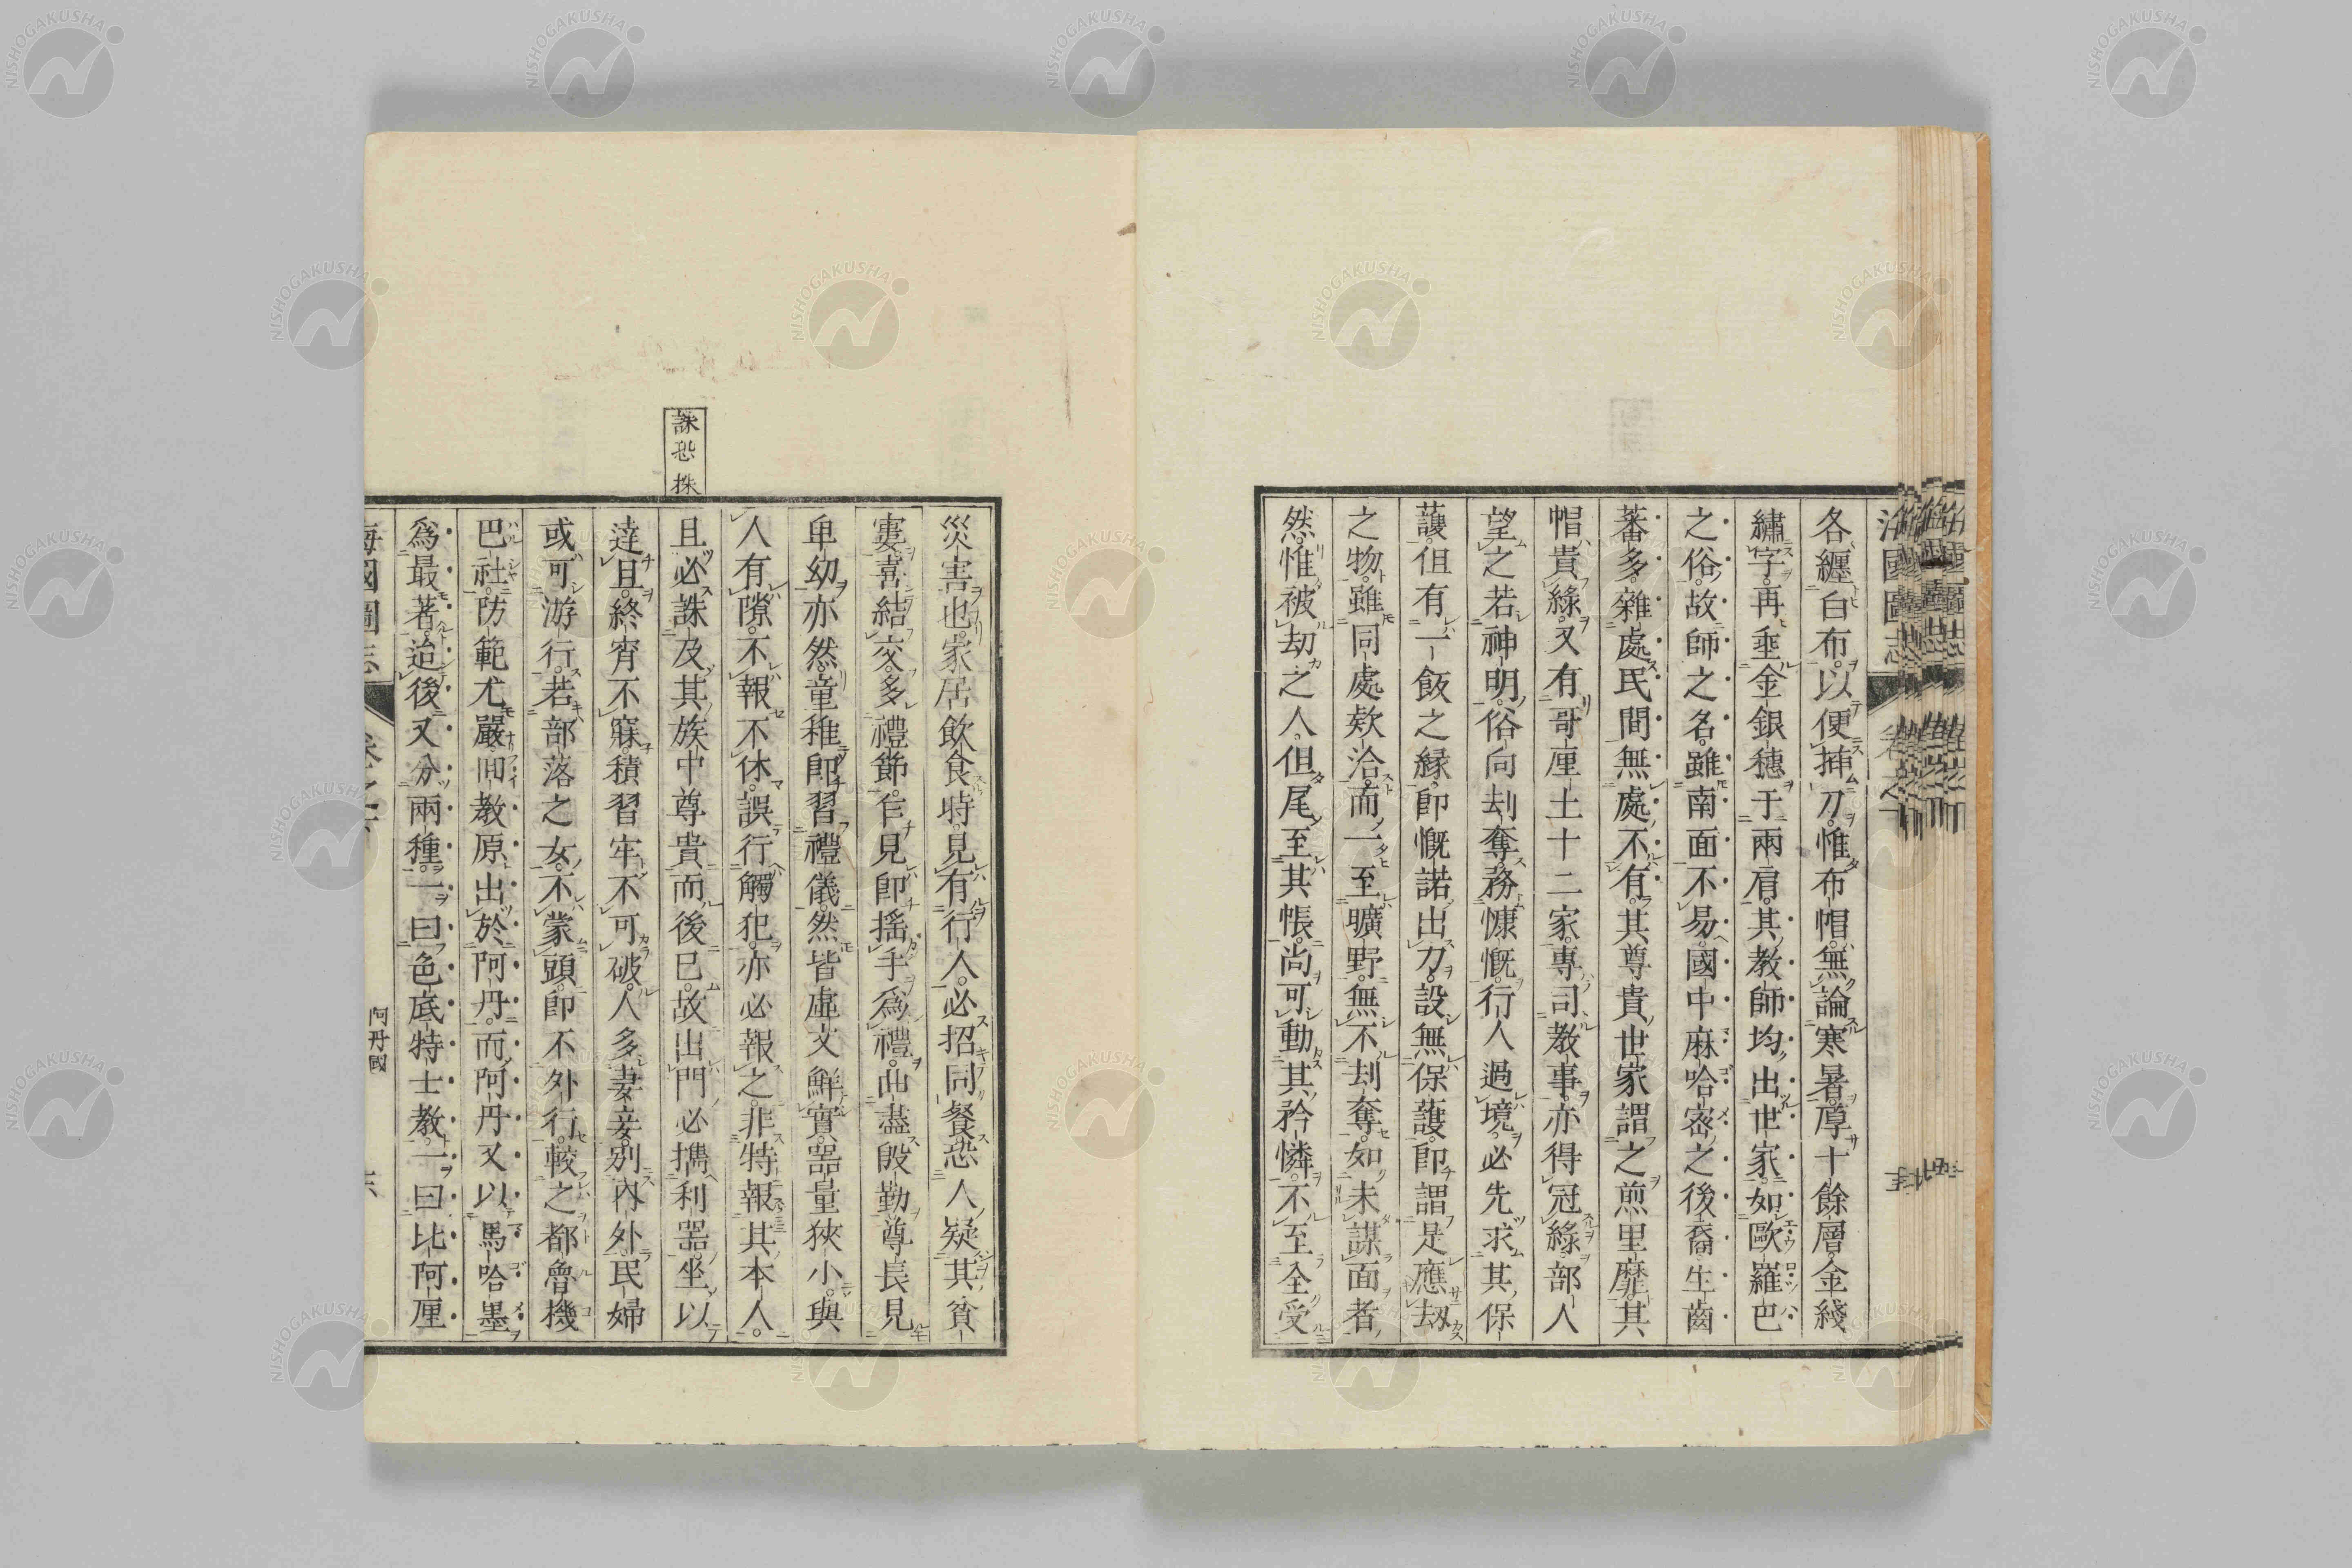 各纏白布。以便揷刀。惟布帽。無論寒暑。厚十餘層。金綫
繡字。再埀金銀穗于兩肩。其教師均出世家。如歐羅巴
之俗。故師之名。雖南面不易。國中麻哈宻之後裔。生齒
蕃多。雜處民間。無處不有。其尊貴世家。謂之煎里靡。其
帽貴綠。又有哥厘土十二家。專司教事。亦得冠綠。部人
望之若神明。俗向刦奪。務慷慨。行人過境。必先求其保
護。但有一飯之緣。卽慨諾出力。設無保護。卽謂是應刼
之物。雖同處欵洽。而一至曠野。無不刦奪。如未謀面者
然。惟被刧之人。但尾至其帳。尚可動其矜憐。不至全受
災害也。家居飲食時。見有行人。必招同餐。恐人疑其貧
寠。喜結交。多禮節。乍見卽搖手爲禮。曲盡殷勤。尊長見
卑幼亦然。童稚卽習禮儀。然皆虛文鮮實。器量狹小。與
人有隙。不報不休。誤行觸犯。亦必報之。非特報其本人。
且必誅及其族中尊貴而後已。故出門必擕利器。坐以
達旦。終宵不寐。積習牢不可破。人多妻妾。別內外。民婦
或可游行。若部落之女。不蒙頭。卽不外行。較之都魯機
巴社。防範尤嚴。回教原出於阿丹。而阿丹又以馬哈墨
爲最著。迨後又分兩種。一曰色底特士教。一曰比阿厘
誅恐株
海國圖志
阿丹國
NISHOGAKUSHA